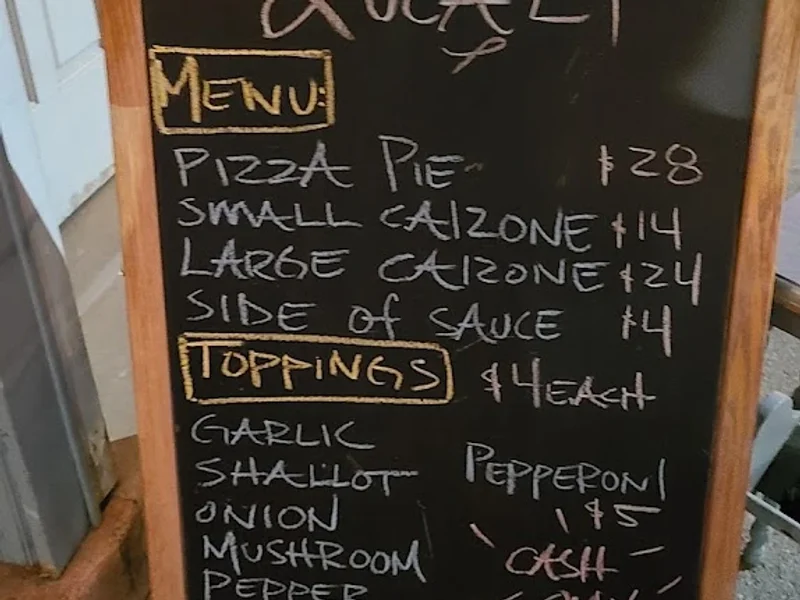 MENU:
PIZZA PIE $28
SMALL CALZONE $14
LARGE CALZONE $24
SIDE OF SAUCE $4
TOPPINGS $4 EACH
GARLIC
SHALLOT
ONION
MUSHROOM
PEPPER
PEPPERONI
$5
CASH